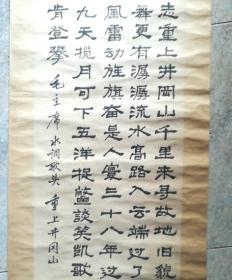 志重上井岡山千里来尋故地旧貌
舞更有潺潺流水高路入云端过了
風雷动旌旗奮是人寰三十八年过
九天揽月可下五洋捉鳖談笑凯歌
肯登攀 毛主席水调歌头 重上井冈山